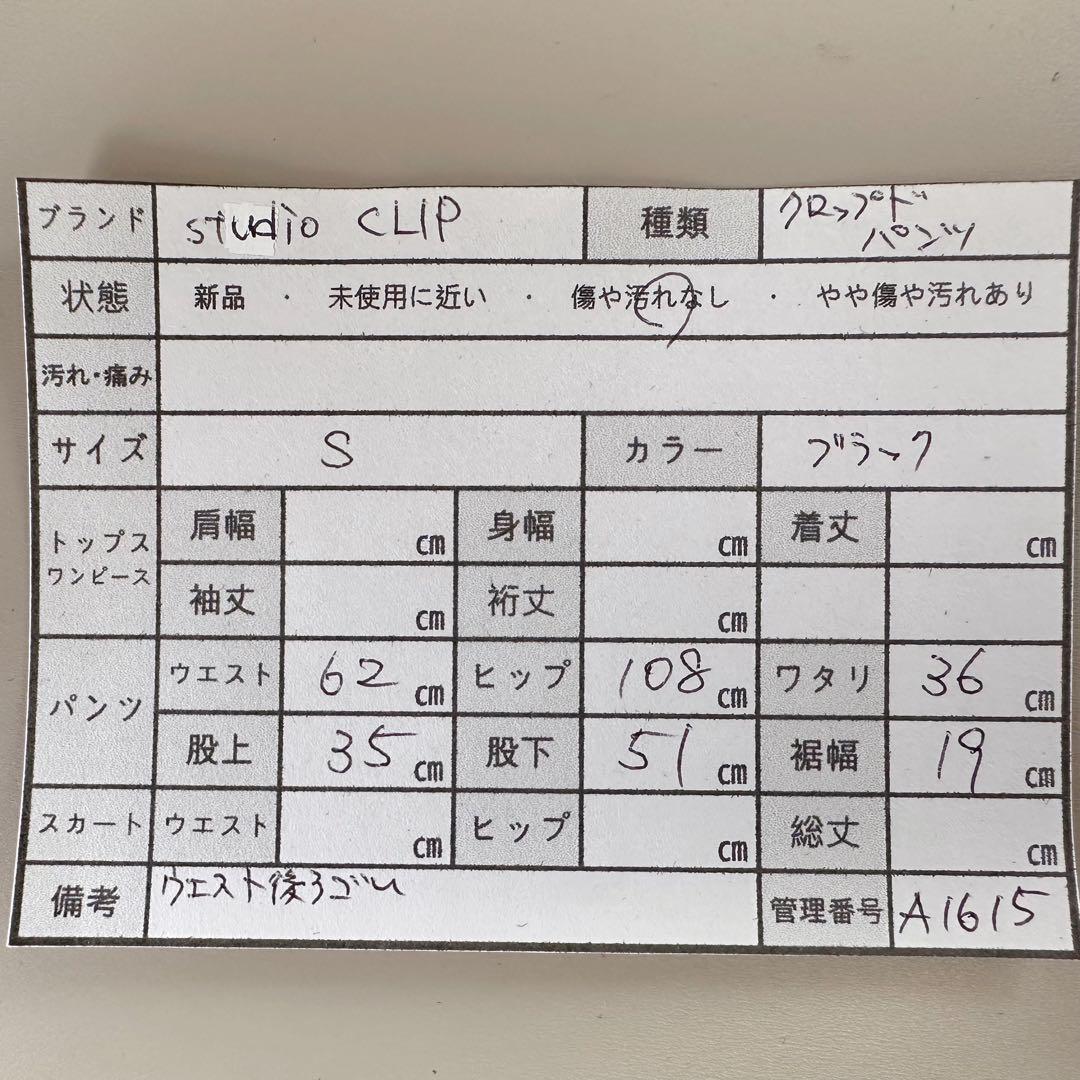 ブランド studio CLIP 種類 クロップド
パンツ
状態 新品 ・ 未使用に近い ・ 傷や汚れなし ・ やや傷や汚れあり
汚れ・痛み
サイズ S カラー ブラック
トップス
ワンピース
肩幅 cm 身幅 cm 着丈 cm
袖丈 cm 裄丈 cm
パンツ
ウエスト 62 cm ヒップ 108 cm ワタリ 36 cm
股上 35 cm 股下 51 cm 裾幅 19 cm
スカート ウエスト cm ヒップ cm 総丈 cm
備考 ウエスト後ろゴム 管理番号 A1615